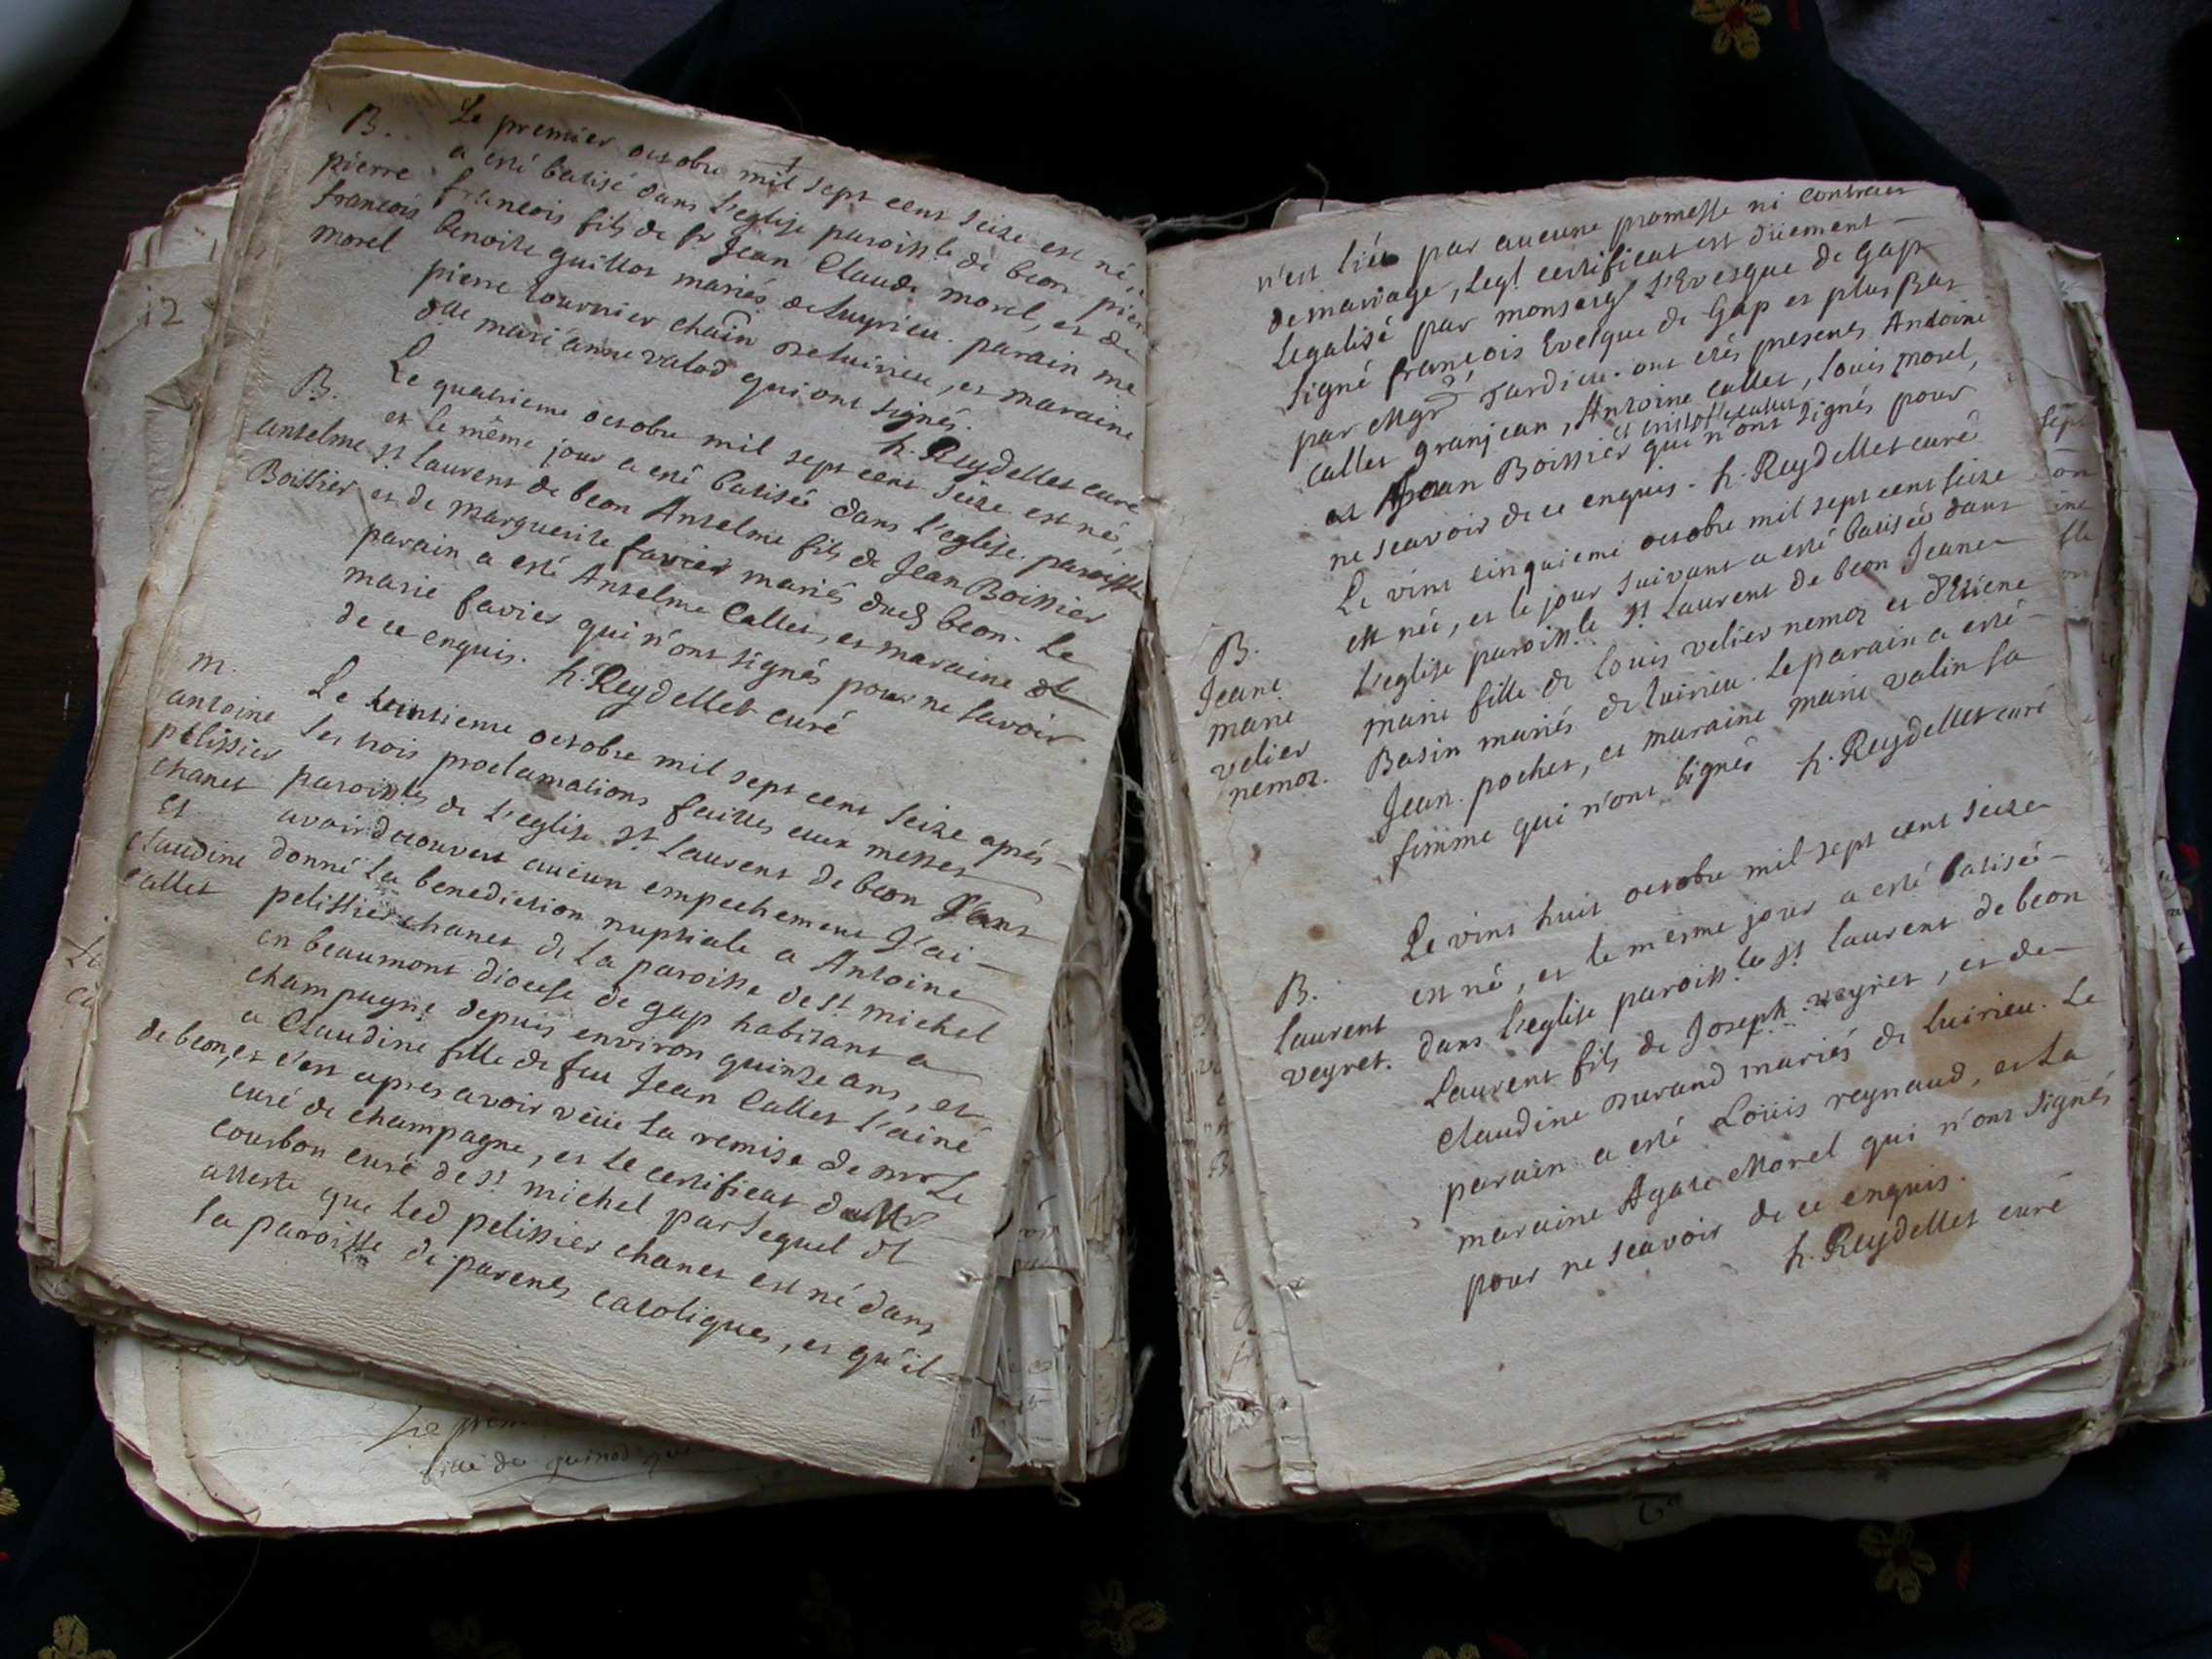 B. Le premier octobre mil sept cent seize est né,
a esté batisé dans l'eglise paroissle de beon pier
pierre francois fils de sr Jean Claude morel, et de
francois benoite guillot mariés de luyrieu. parain me
morel pierre tournier chain de luirieu, et maraine
dlle marianne valod qui ont signés.
h. Reydellet curé
B. Le quatrieme octobre mil sept cent seize est né,
et le même jour a esté batisé dans l'eglise paroissle
anselme st laurent de beon Anselme fils de Jean Boissier
Boissier et de marguerite favier mariés dud beon. Le
parain a esté Anselme Callet, et maraine
marie favier qui n'ont signés pour ne savoir
de ce enquis. h. Reydellet curé
m. Le octobre mil sept cent seize aprés
antoine les trois proclamations faittes aux messes
pelissier paroissles de l'eglise st laurent de beon sans
chanet avoir decouvert aucun empechement J'ai
et donné la benediction nuptiale a Antoine
claudine pelissier chanet de la paroisse de st michel
callet en beaumont diocese de gap habitant a
champagne depuis environ quinze ans, et
a Claudine fille de feu Jean Callet l'ainé
de beon, et c'est apres avoir vëue la remise de mr le
curé de champagne, et le certificat de Mr
courbon curé de st michel par lequel
atteste que led pelissier chanet est né dans
sa paroisse de parents catoliques, et qu'il
n'est lié par aucune promesse ni contract
de mariage, leql certificat est düement
Legalisé par monseigr l'Evesque de Gap
signé francois Evesque de Gap et plus Bas
par Mgr Tardieu. ont etés presents Antoine
callet granjean, Antoine callet, louis morel,
et cristofle callet
et Jean Boissier qui n'ont signés pour
ne sçavoir de ce enquis. h. Reydellet curé
Le vint cinquieme octobre mil sept cent seize
B. est née, et le jour suivant a esté batisée dans
Jeane l'eglise paroissle st laurent de beon Jeane
marie marie fille de Louis velier nemoz et d'Etiene
velier Basin mariés de luirieu. Le parain a esté
nemoz. Jean pochet, et maraine marie valin sa
femme qui n'ont signés h. Reydellet curé
Le vint huit octobre mil sept cent seize
B. est né, et le mesme jour a esté batisé
laurent dans l'eglise paroissle st laurent de beon
veyret. Laurent fils de Joseph veyret, et de
Claudine durand mariés de luirieu. Le
parain a esté Loüis reynaud, et la
maraine Agate Morel qui n'ont signés
pour ne sçavoir de ce enquis.
h. Reydellet curé